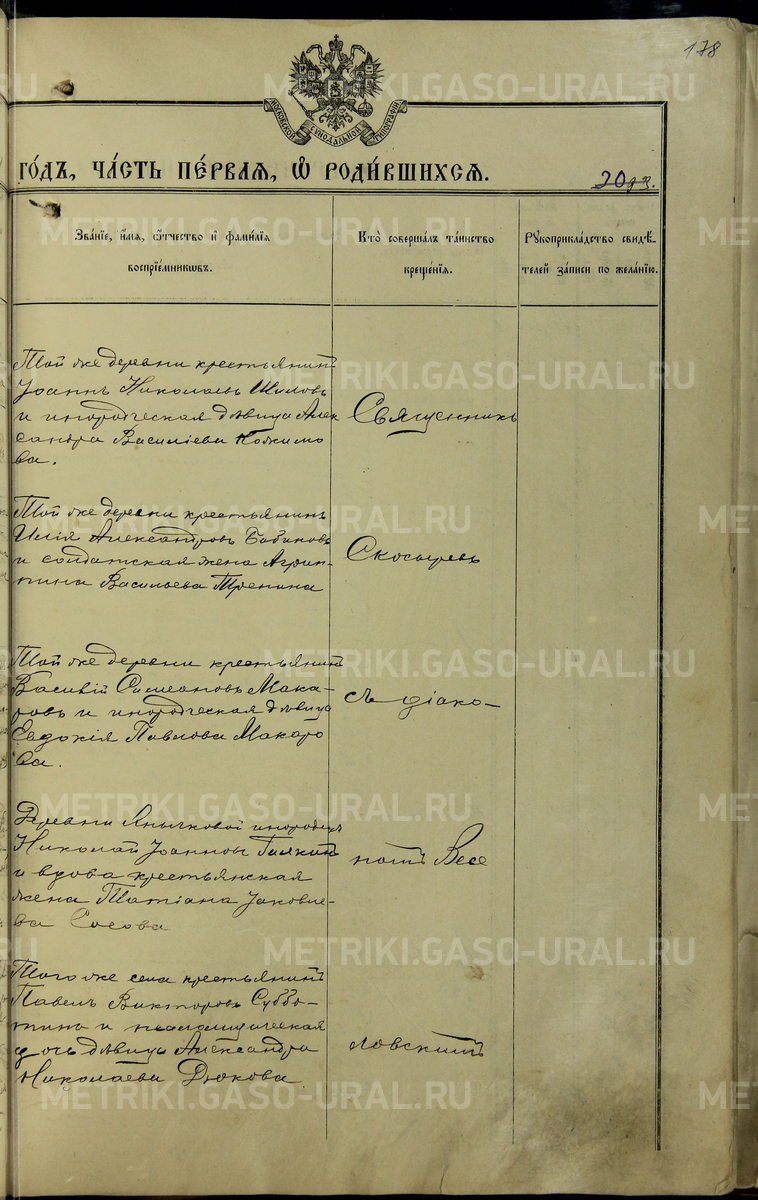 178
МОСКОВСКОЙ СУНОДАЛЬНОЙ ТИПОГРАФІИ
ГО́ДЪ, ЧА́СТЬ ПЕ́РВАЯ, Ѡ РОДИ́ВШИХСЯ.
Зва́нїе, и҆́мѧ, ѻ҆́тчество и҆ фами́лїѧ
воспрїе́мникѡвъ.
Кто̀ соверша́лъ та́инство
креще́нїѧ.
Рꙋкоприкла́дство свидѣ́-
телей за́писи по жела́нїю.
Той же деревни крестьянинъ
Іоаннъ Николаевъ Шиловъ
и инородческая дѣвица Алек
сандра Василіева Кожимо
ва.
Священникъ
Той же деревни крестьянинъ
Илія Александровъ Бабиновъ
и солдатская жена Агрип-
пина Васильева Тренина
Скосыревъ
Той же деревни крестьянинъ
Василій Симеоновъ Мака-
ровъ и инородческая дѣвица
Евдокія Павлова Макаро
ва.
съ діако-
Деревни Янычковой инородецъ
Николай Іоанновъ
и вдова крестьянская
жена Татіана Іаковле-
ва Сосова
номъ Весе
Того же села крестьянинъ
Павелъ Викторовъ Суббо-
тинъ и псаломщическая
дочь дѣвица Александра
Николаева Дюкова.
ловскимъ
METRIKI.GASO-URAL.RU